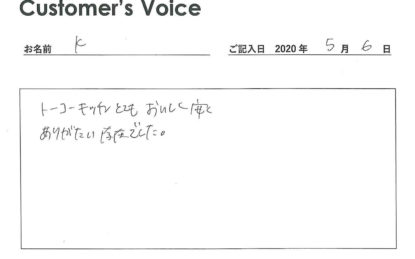 Customer's Voice
お名前 K ご記入日 2020年 5月 6日
トーコーキッチンとても おいしく安く
ありがたい存在でした。